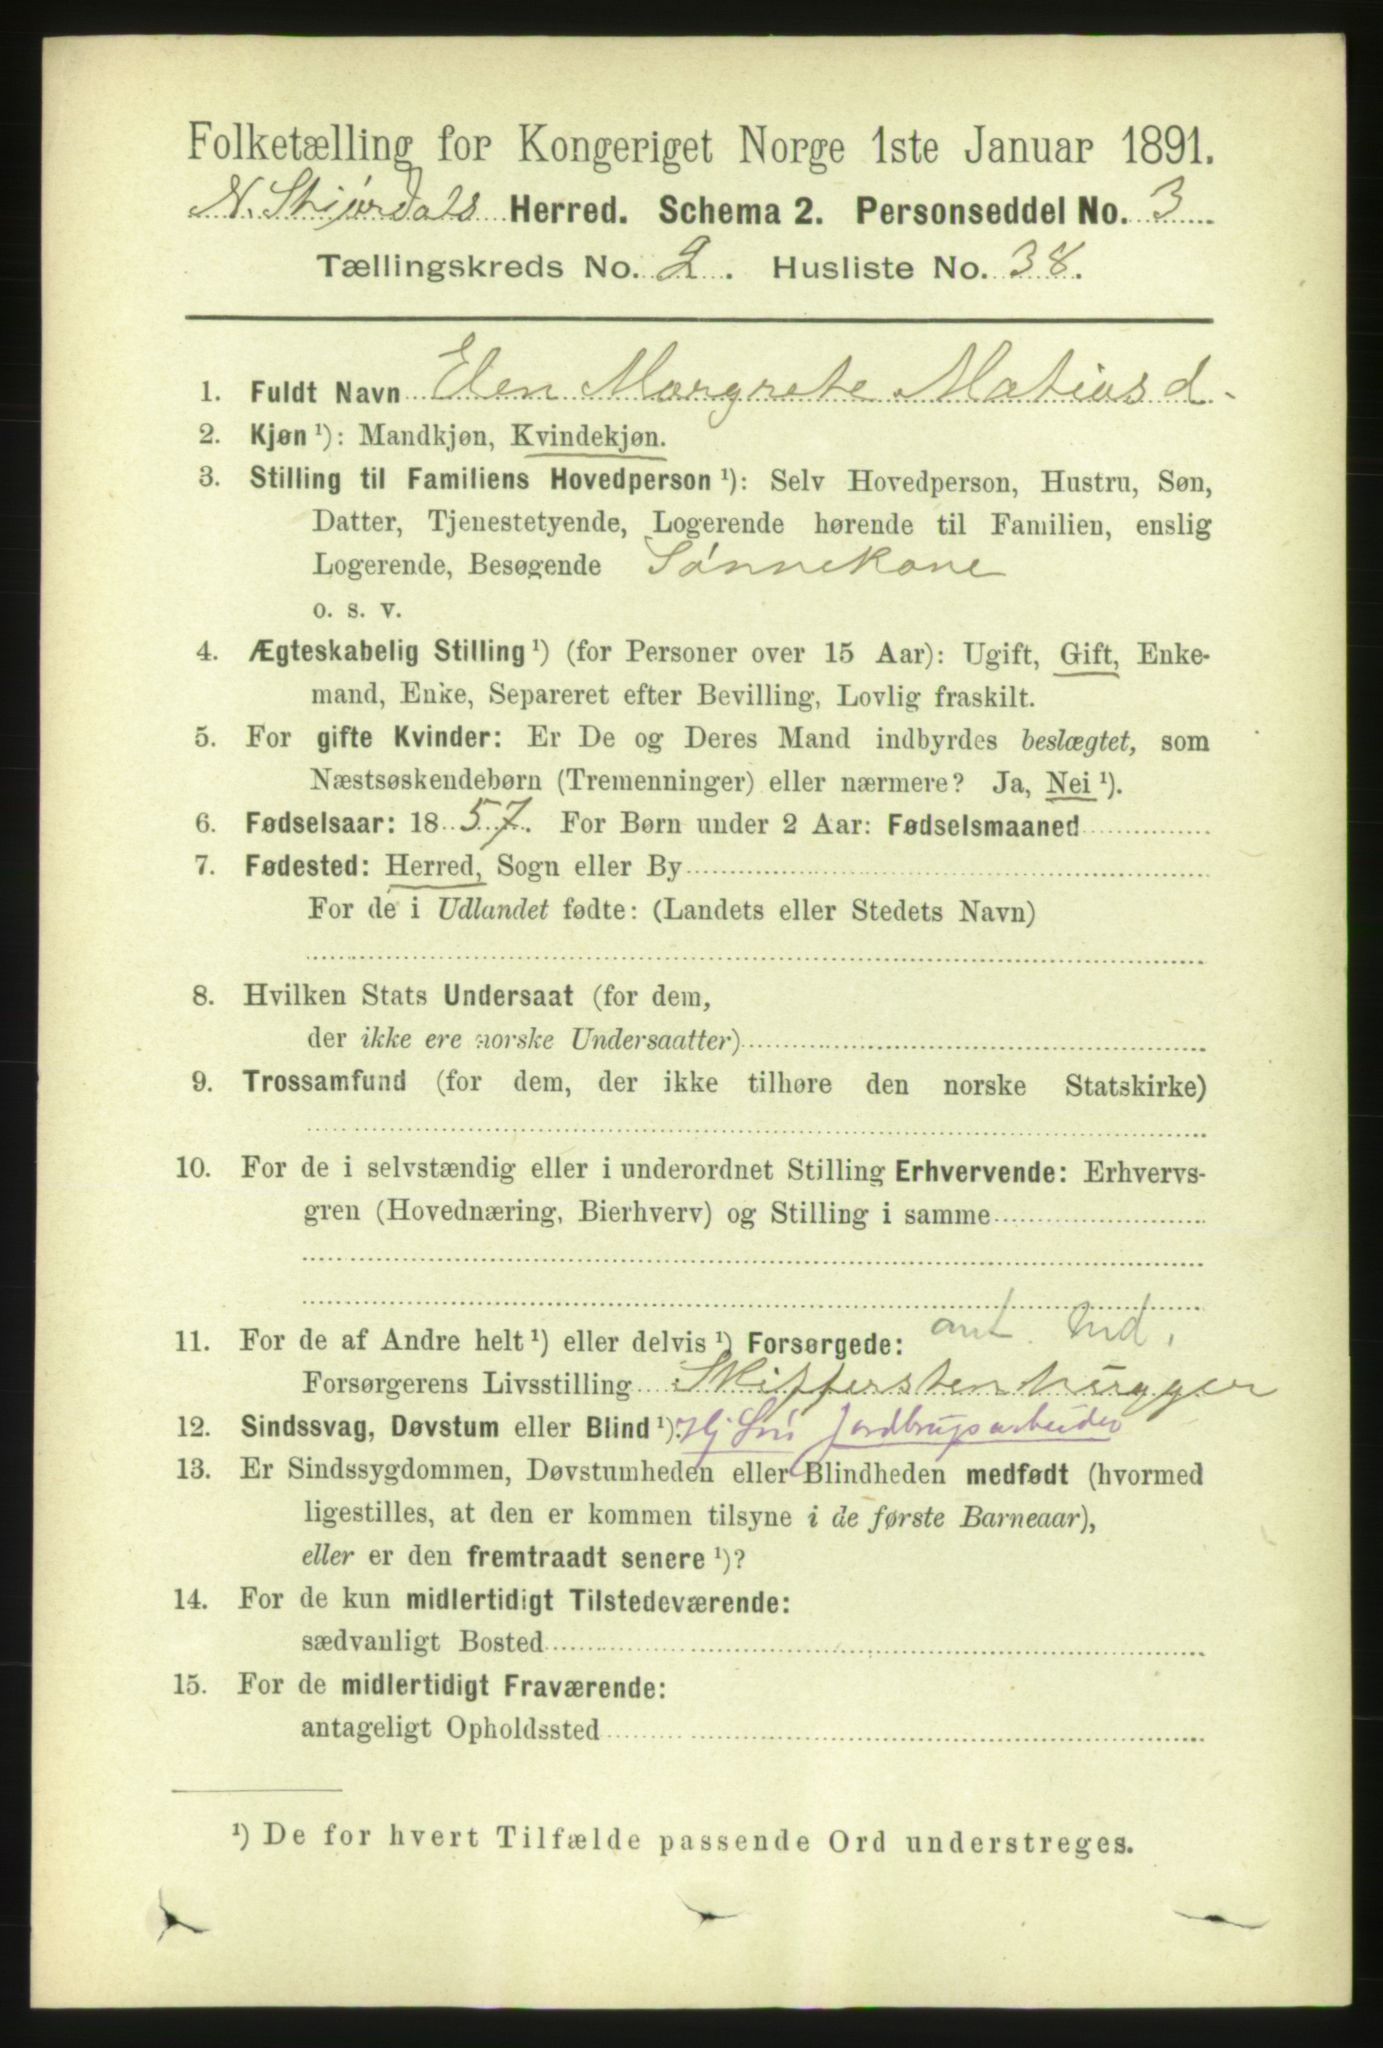 Folketælling for Kongeriget Norge 1ste Januar 1891.
N. Stjørdals Herred. Schema 2. Personseddel No. 3
Tællingskreds No. 2. Husliste No. 38.
1. Fuldt Navn Elen Margrete Matiasd.
2. Kjøn ¹): Mandkjøn, Kvindekjøn.
3. Stilling til Familiens Hovedperson ¹): Selv Hovedperson, Hustru, Søn,
Datter, Tjenestetyende, Logerende hørende til Familien, enslig
Logerende, Besøgende Sønnekone
o. s. v.
4. Ægteskabelig Stilling ¹) (for Personer over 15 Aar): Ugift, Gift, Enke-
mand, Enke, Separeret efter Bevilling, Lovlig fraskilt.
5. For gifte Kvinder: Er De og Deres Mand indbyrdes beslægtet, som
Næstsøskendebørn (Tremenninger) eller nærmere? Ja, Nei ¹).
6. Fødselsaar: 1857. For Børn under 2 Aar: Fødselsmaaned
7. Fødested: Herred, Sogn eller By
For de i Udlandet fødte: (Landets eller Stedets Navn)
8. Hvilken Stats Undersaat (for dem,
der ikke ere norske Undersaatter)
9. Trossamfund (for dem, der ikke tilhøre den norske Statskirke)
10. For de i selvstændig eller i underordnet Stilling Erhvervende: Erhvervs-
gren (Hovednæring, Bierhverv) og Stilling i samme
11. For de af Andre helt ¹) eller delvis ¹) Forsørgede: ant. Ind.
Forsørgerens Livsstilling Skifferstenhugger
12. Sindssvag, Døvstum eller Blind ¹). Jordbrugsarbeider
13. Er Sindssygdommen, Døvstumheden eller Blindheden medfødt (hvormed
ligestilles, at den er kommen tilsyne i de første Barneaar),
eller er den fremtraadt senere ¹)?
14. For de kun midlertidigt Tilstedeværende:
sædvanligt Bosted
15. For de midlertidigt Fraværende:
antageligt Opholdssted
¹) De for hvert Tilfælde passende Ord understreges.